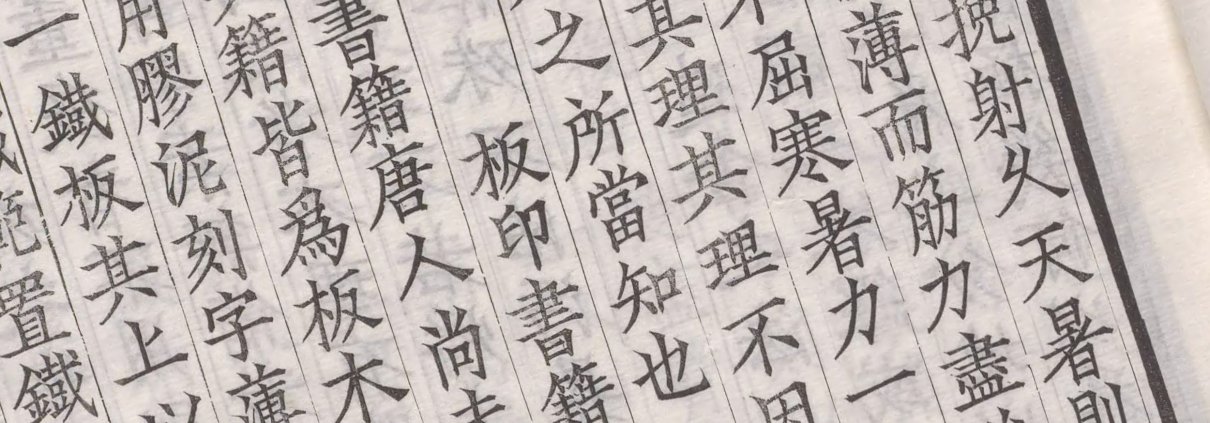 挽射久天暑則
薄而筋力盡
不屈寒暑力一
其理其理不因
之所當知也
板印書籍
書籍唐人尚未
籍皆爲板木
用膠泥刻字薄
一鐵板其上以
範置鐵